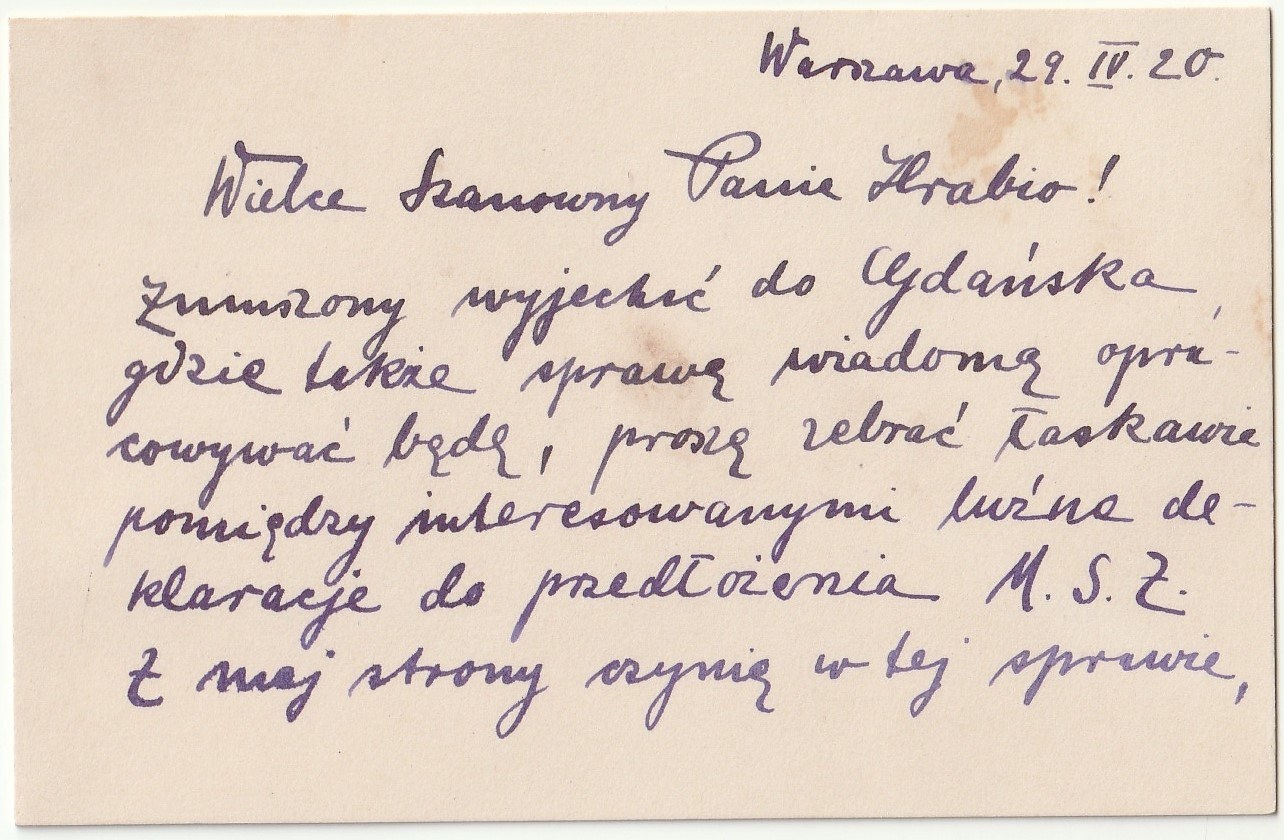 Warszawa, 29. IV. 20.
Wielce Szanowny Panie Hrabio!
Zmuszony wyjechać do Gdańska,
gdzie także sprawę wiadomą opra-
cowywać będę, proszę zebrać łaskawie
pomiędzy interesowanymi luźne de-
klaracje do przedłożenia M. S. Z.
Z mej strony czynię w tej sprawie,